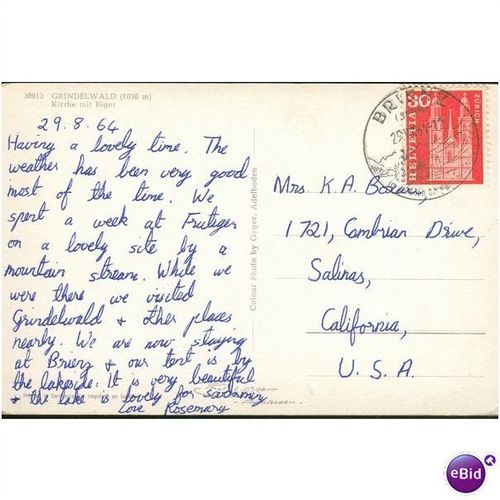 38913 GRINDELWALD (1038 m)
Kirche mit Eiger
29.8.64
Having a lovely time. The
weather has been very good
most of the time. We
spent a week at Frutigen
on a lovely site by a
mountain stream. While we
were there we visited
Grindelwald & other places
nearby. We are now staying
at Brienz & our tent is by
the lakeside. It is very beautiful
& the lake is lovely for swimming
Love Rosemary
Colour Photo by Gyger, Adelboden
BRIENZ
30
HELVETIA
ZÜRICH
Mrs. K. A.
1721, Cambrian Drive,
Salinas,
California,
U. S. A.
eBid